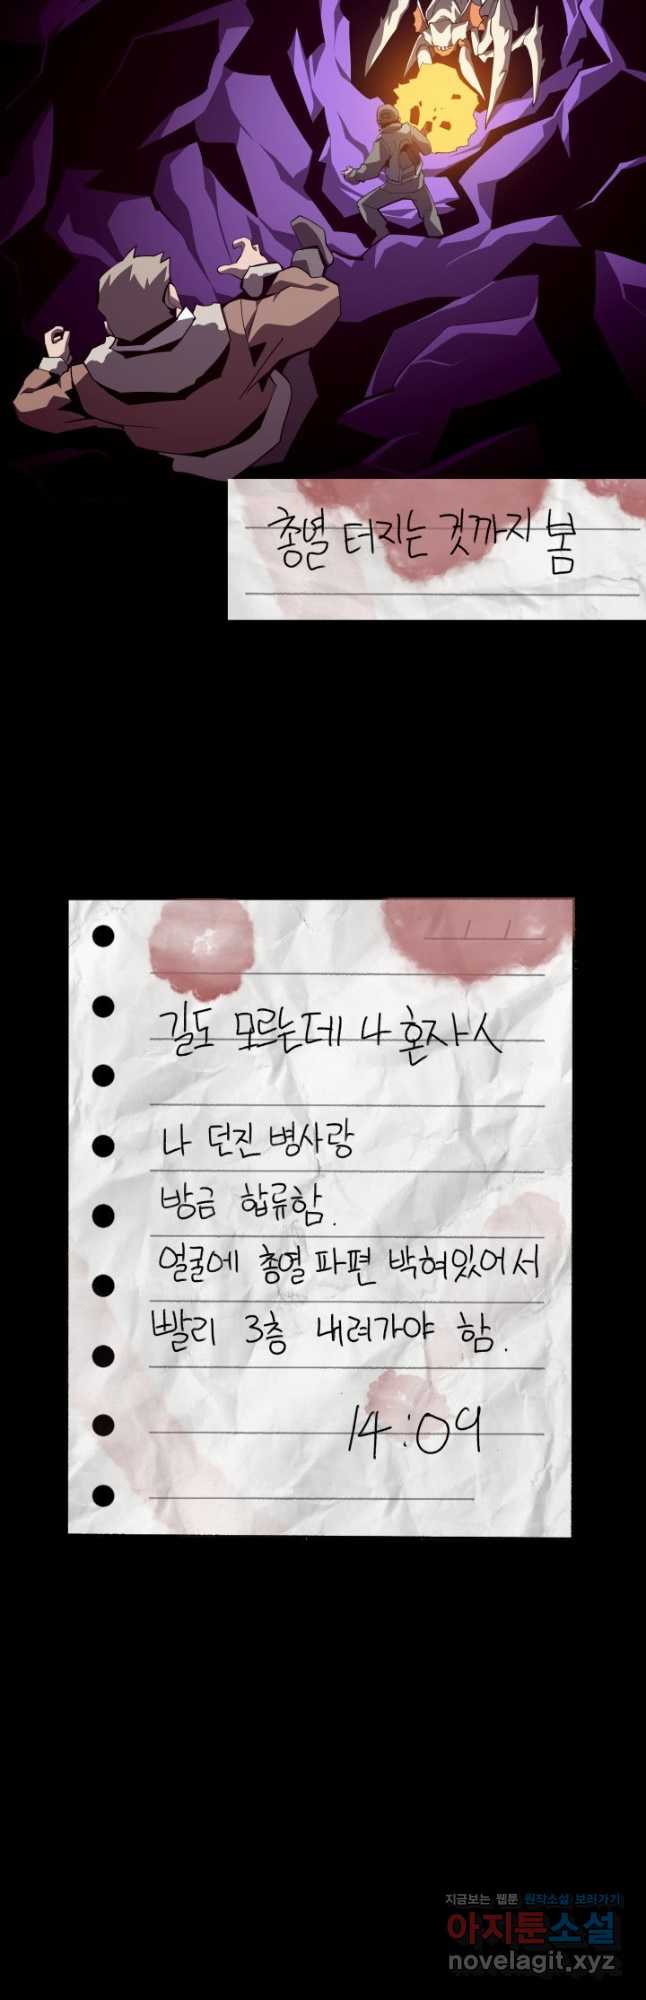 총열 터지는 것까지 봄
길도 모르는데 나 혼자ㅅ
나 던진 병사랑
방금 합류함.
얼굴에 총열 파편 박혀있어서
빨리 3층 내려가야 함.
14:09
지금보는 웹툰 원작소설 보러가기
아지툰소설
novelagit.xyz